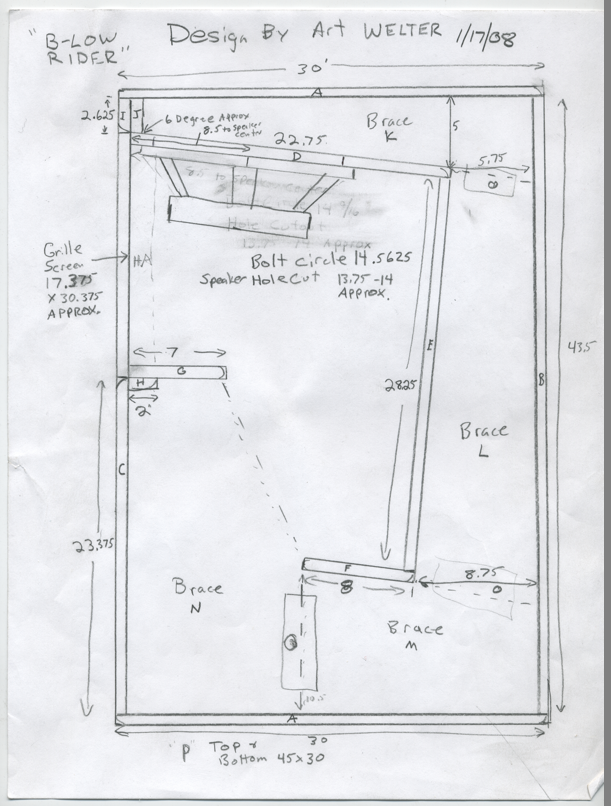 "B-LOW RIDER"
Design By Art WELTER 1/17/08
30'
A
2.625
I
J
6 Degree Approx
8.5 to speaker
centr
Brace
K
5
22.75
D
5.75
8
8.5 to Speaker Center
Bolt Circle 14 9/16
Hole Cutout
13.75 - 14 Approx
Grille
Screen
17.375
X 30.375
APPROX.
H/A
Bolt circle 14.5625
Speaker Hole Cut 13.75-14
Approx.
7
G
H
2"
E
B
43.5
28.25
C
Brace
L
23.375
F
8
8.75
O
Brace
N
Brace
M
O
10.5
A
30
P Top &
Bottom 45x30